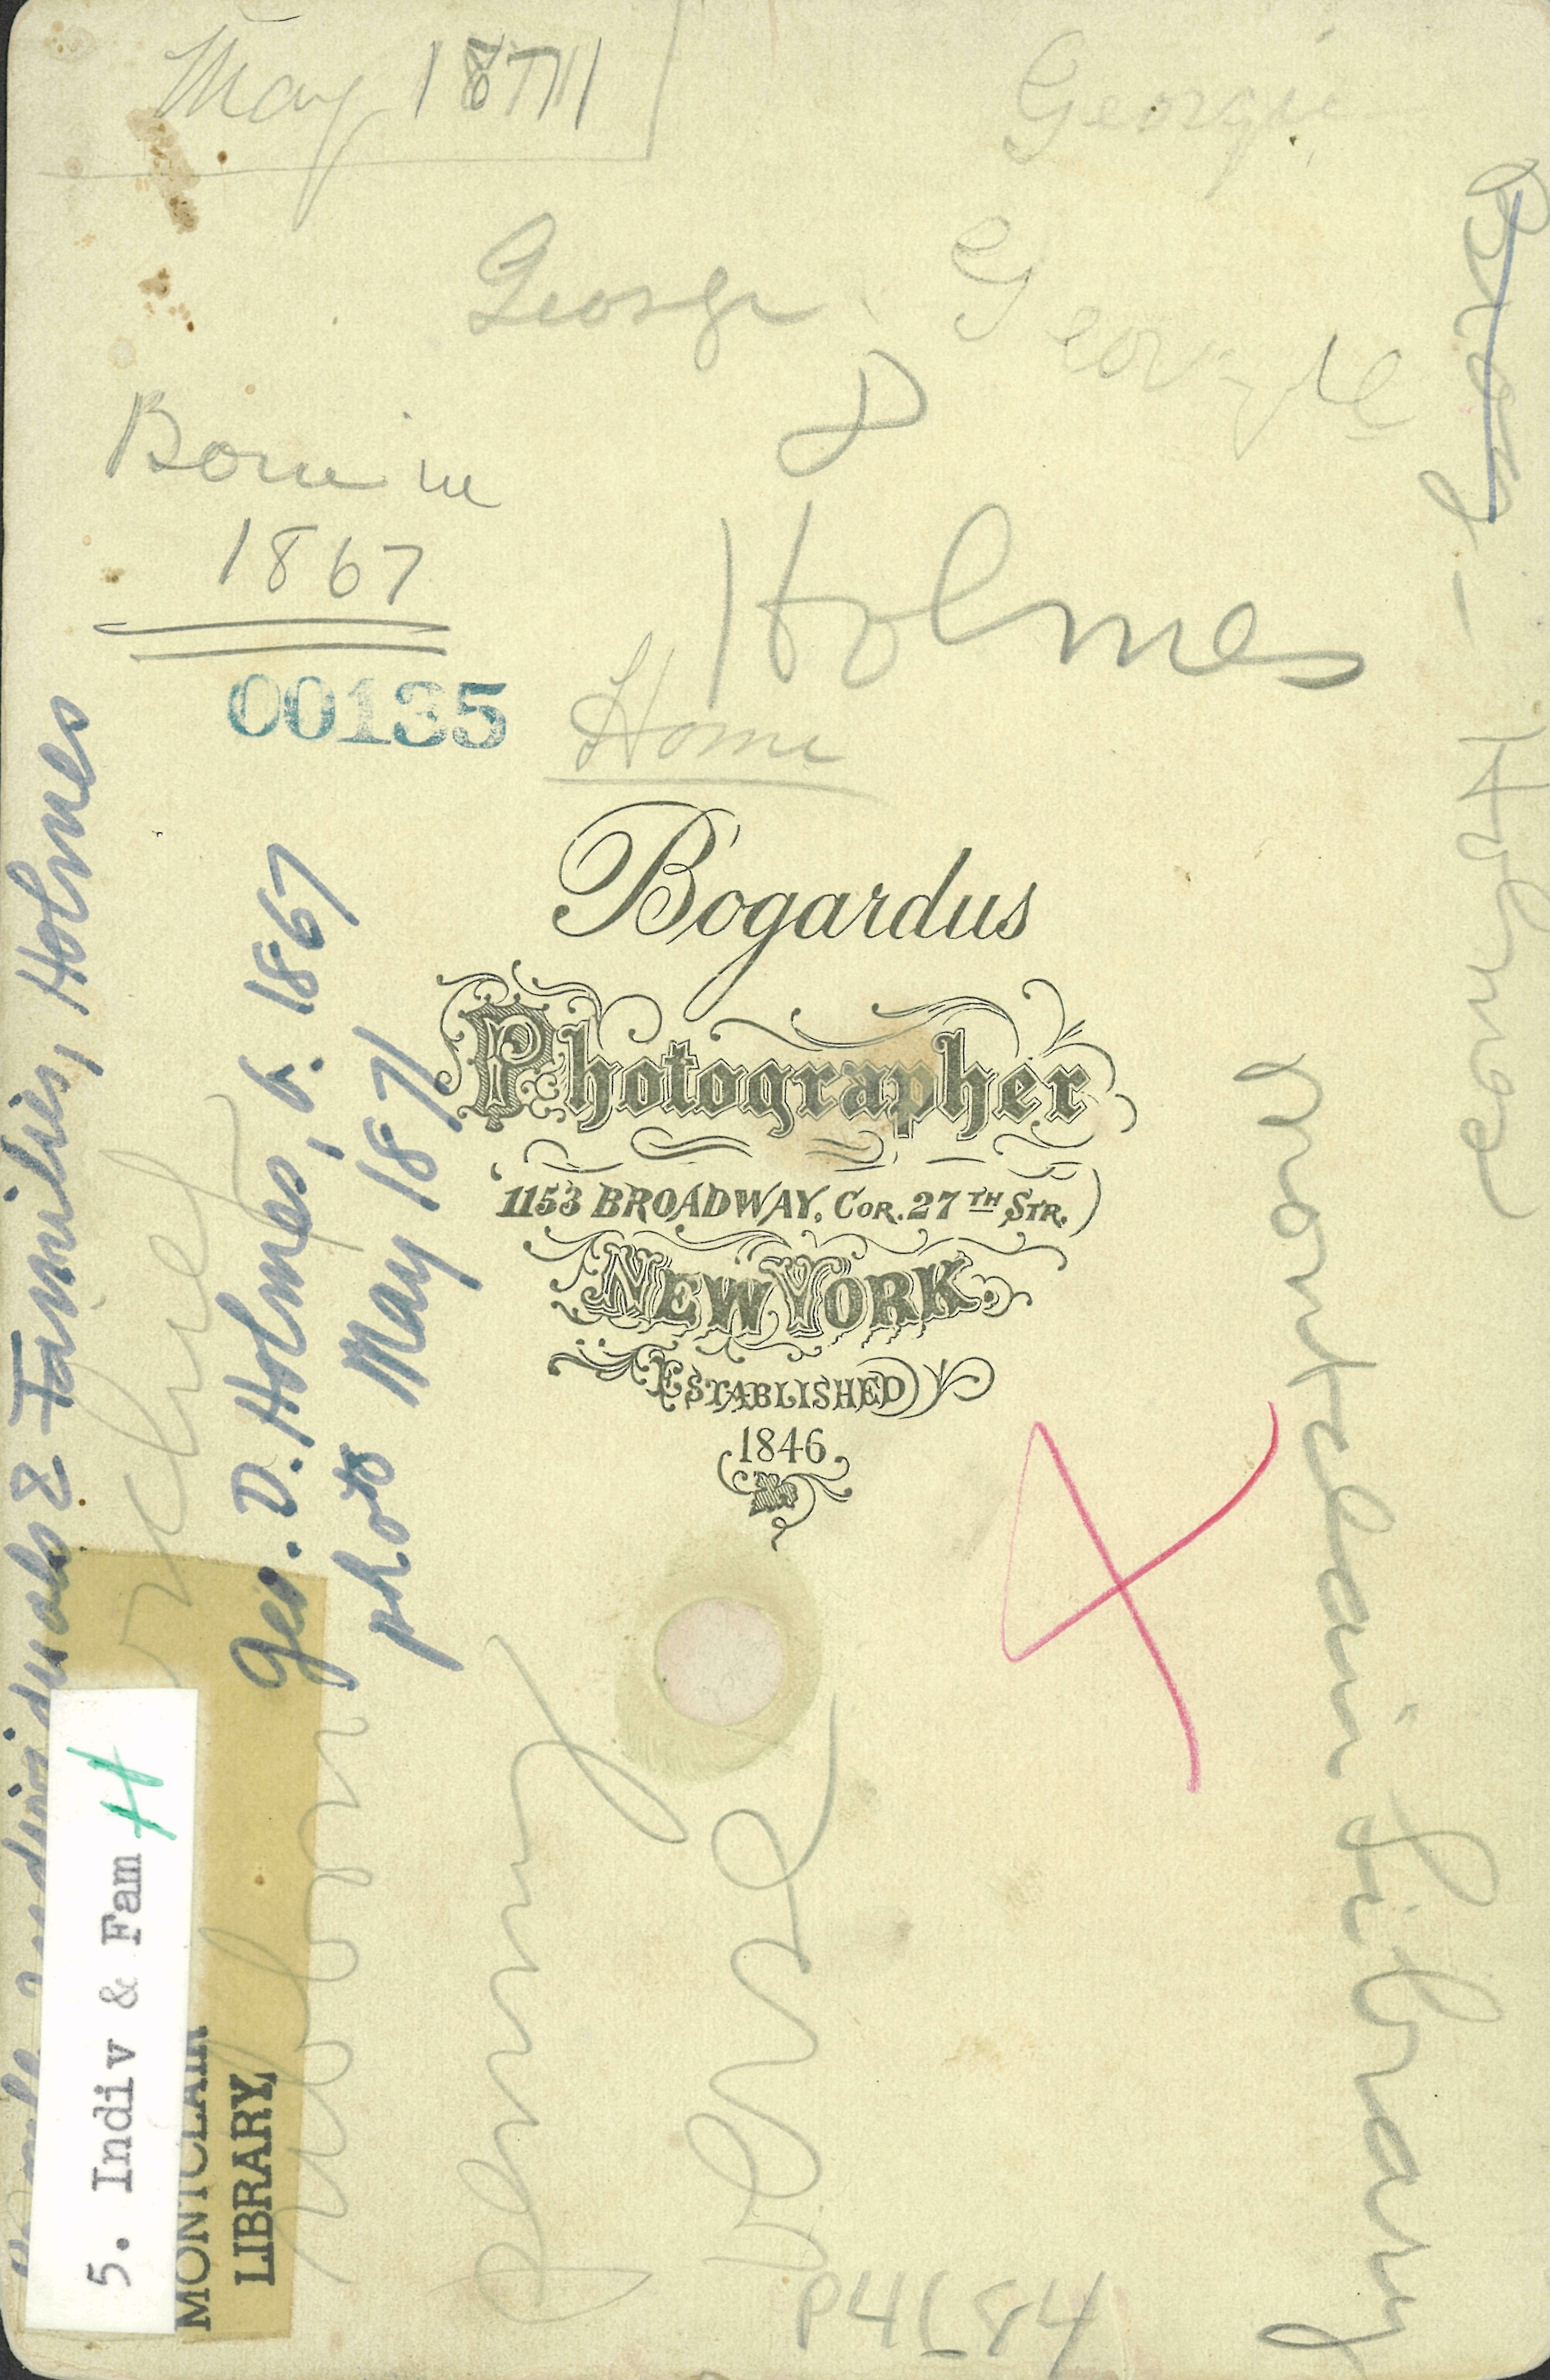 May 1871
Georgie
George Georgie
D
Born in
1867
Holmes
00135
Home
Bogardus
Photographer
1153 BROADWAY, COR. 27TH STR.
NEW YORK.
ESTABLISHED
1846.
Individuals & Families, Holmes
Geo. D. Holmes, b. 1867
photo May 1871
5. Indiv & Fam H
MONTCLAIR
LIBRARY
Biog - Holmes
Montclair Library